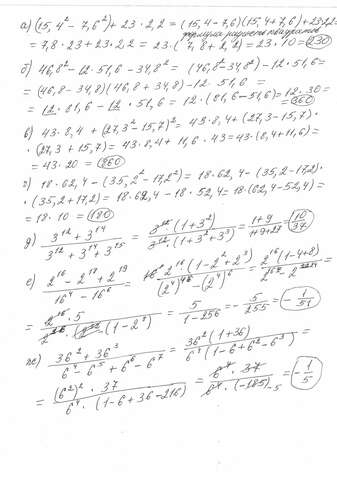 а) (15,4² - 7,6²) + 23 · 2,2 = (15,4 - 7,6)(15,4 + 7,6) + 23·2,2 =
формула разности квадратов
= 7,8 · 23 + 23 · 2,2 = 23 · (7,8 + 2,2) = 23 · 10 = 230
б) 46,8² - 12 · 51,6 - 34,8² = (46,8² - 34,8²) - 12 · 51,6 =
= (46,8 - 34,8)(46,8 + 34,8) - 12 · 51,6 =
= 12 · 81,6 - 12 · 51,6 = 12 · (81,6 - 51,6) = 12 · 30 =
= 360
в) 43 · 8,4 + (27,3² - 15,7²) = 43 · 8,4 + (27,3 - 15,7) ·
· (27,3 + 15,7) = 43 · 8,4 + 11,6 · 43 = 43 · (8,4 + 11,6) =
= 43 · 20 = 860
г) 18 · 62,4 - (35,2² - 17,2²) = 18 · 62,4 - (35,2 - 17,2) ·
· (35,2 + 17,2) = 18 · 62,4 - 18 · 52,4 = 18 · (62,4 - 52,4) =
= 18 · 10 = 180
д) (3¹² + 3¹⁴) / (3¹² + 3¹⁴ + 3¹⁵) = 3¹² (1 + 3²) / 3¹² · (1 + 3² + 3³) = (1 + 9) / (1 + 9 + 27) = 10/37
е) (2¹⁶ - 2¹⁸ + 2¹⁹) / (16⁴ - 16⁶) = 2¹⁶ · (1 - 2² + 2³) / (2⁴)⁴ - (2⁴)⁶ = 2¹⁶ (1 - 4 + 8) / 2¹⁶ - 2²⁴
= 2¹⁶ · 5 / 2¹⁶ · (1 - 2⁸) = 5 / (1 - 256) = - 5/255 = - 1/51
ж) (36² + 36³) / (6⁴ - 6⁵ + 6⁶ - 6⁷) = 36² (1 + 36) / 6⁴ (1 - 6 + 6² - 6³) =
= (6²)² · 37 / 6⁴ · (1 - 6 + 36 - 216) = 6⁴ · 37 / 6⁴ · (-185) -5 = - 1/5